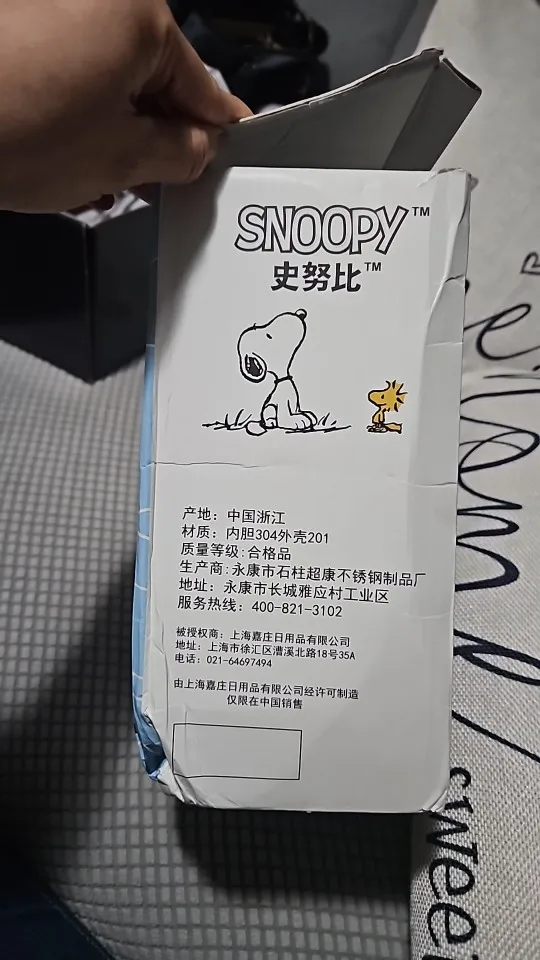 SNOOPY™
史努比™
产地：中国浙江
材质：内胆304外壳201
质量等级:合格品
生产商:永康市石柱超康不锈钢制品厂
地址：永康市长城雅应村工业区
服务热线：400-821-3102
被授权商：上海嘉庄日用品有限公司
地址：上海市徐汇区漕溪北路18号35A
电话：021-64697494
由上海嘉庄日用品有限公司经许可制造
仅限在中国销售
swee